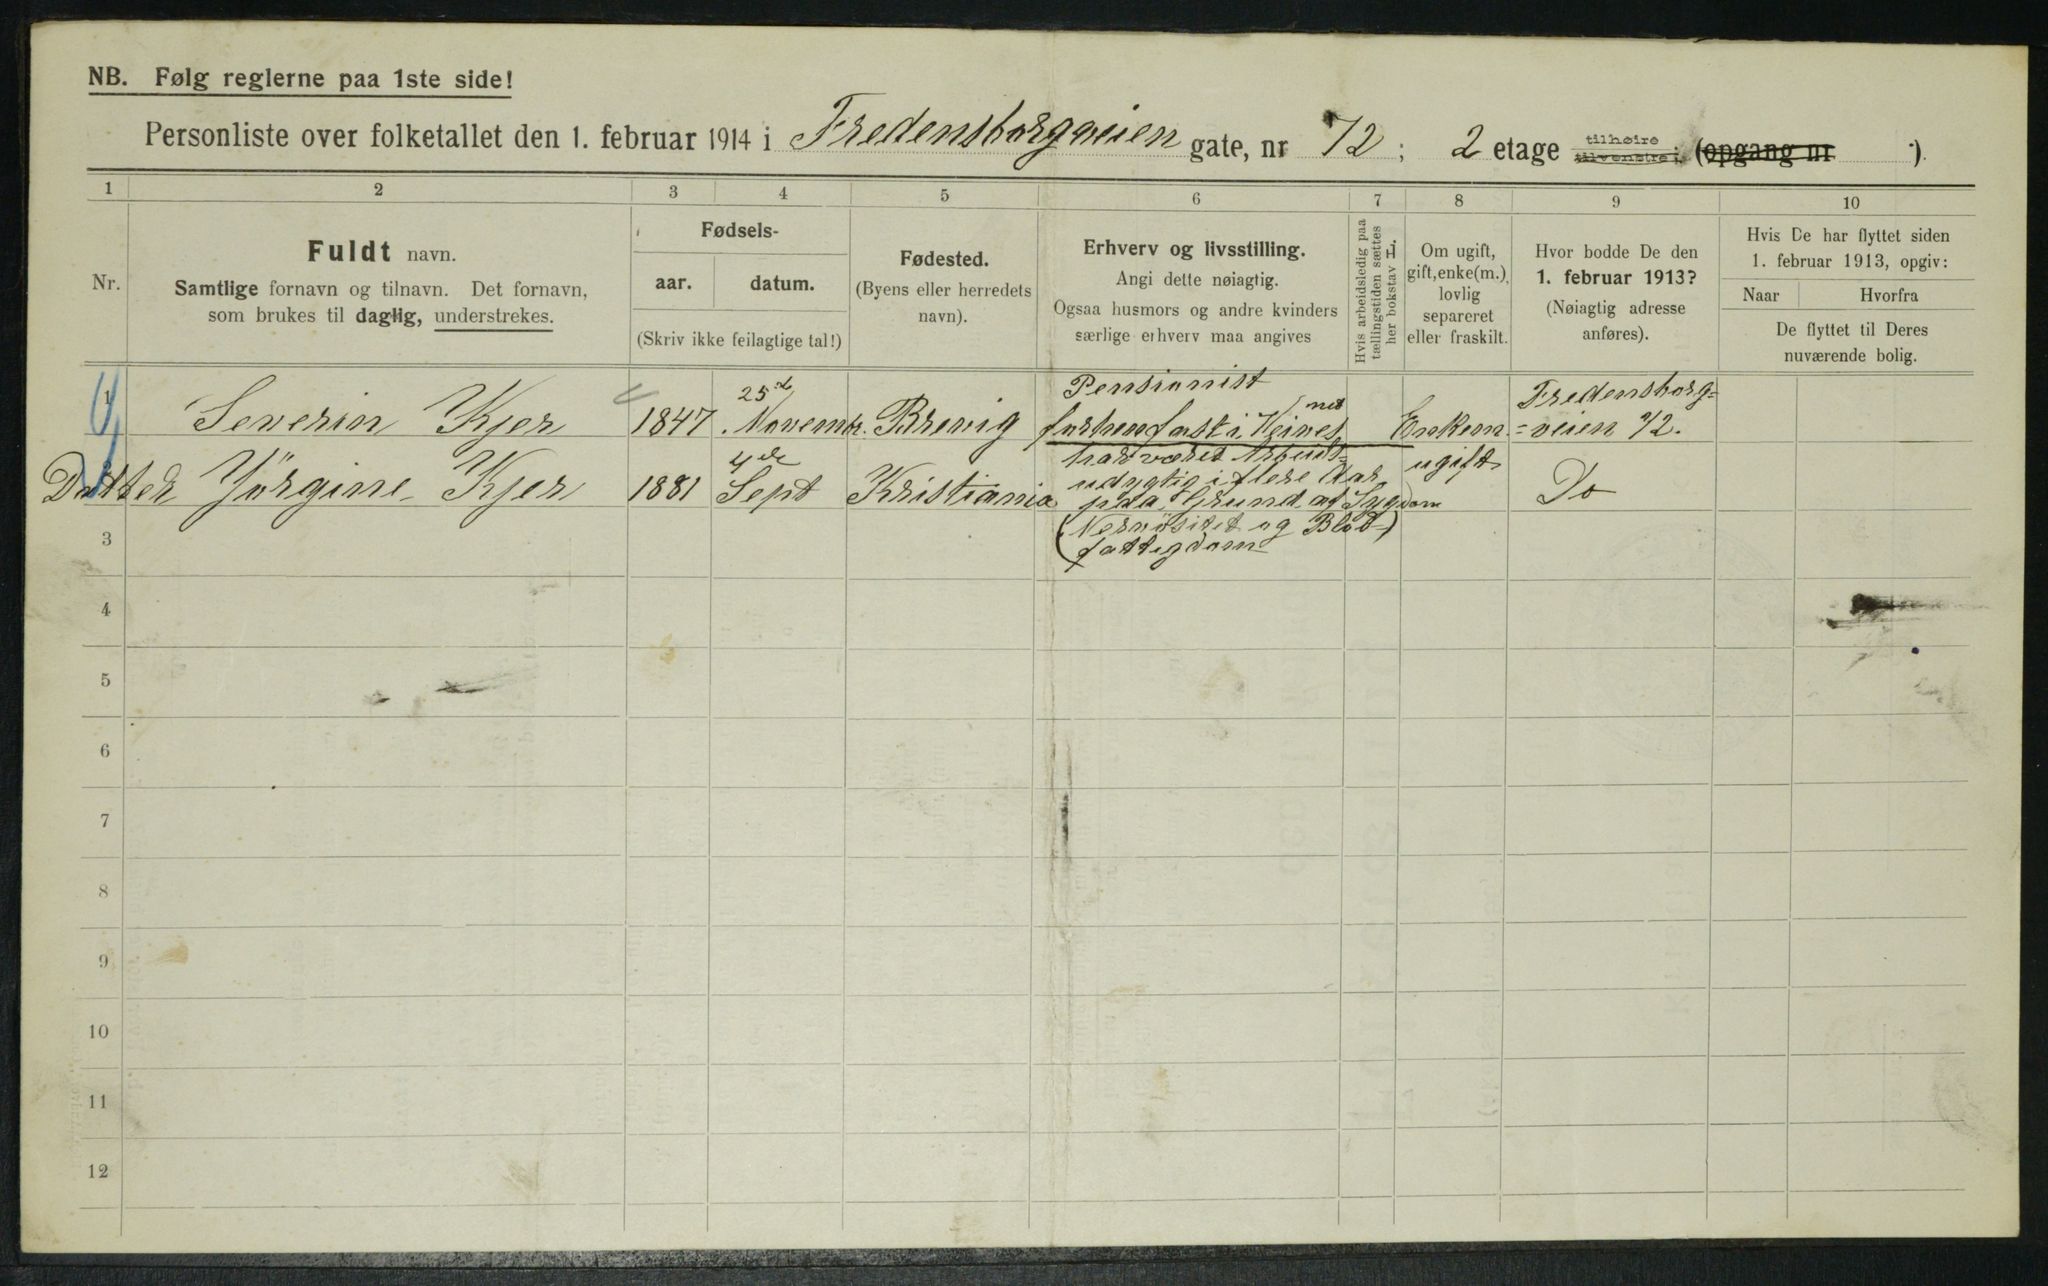 NB. Følg reglerne paa 1ste side!
Personliste over folketallet den 1. februar 1914 i Fredensborgveien gate, nr 72; 2 etage tilhøire tilvenstre; (opgang nr )
1 2 3 4 5 6 7 8 9 10
Nr.
Fuldt navn.
Samtlige fornavn og tilnavn. Det fornavn,
som brukes til daglig, understrekes.
Fødsels-
aar. datum.
(Skriv ikke feilagtige tal!)
Fødested.
(Byens eller herredets
navn).
Erhverv og livsstilling.
Angi dette nøiagtig.
Ogsaa husmors og andre kvinders
særlige erhverv maa angives
Hvis arbeidsledig paa
tællingstiden sættes
her bokstav L.
Om ugift,
gift, enke(m.),
lovlig
separeret
eller fraskilt.
Hvor bodde De den
1. februar 1913?
(Nøiagtig adresse
anføres).
Hvis De har flyttet siden
1. februar 1913, opgiv:
Naar Hvorfra
De flyttet til Deres
nuværende bolig.
1 Severin Kjer 1847 25de Novembr. Brevig
Pensionist
forhen
Enkem.
Fredensborg=
=veien 72.
Datter Jörgine Kjer 1881 4de Sept Kristiania
har været Arbeids=
udygtig i flere Aar
paa Grund af Sygdom
(Nervösitet og Blod-)
fattigdom
ugift
Do
3
4
5
6
7
8
9
10
11
12